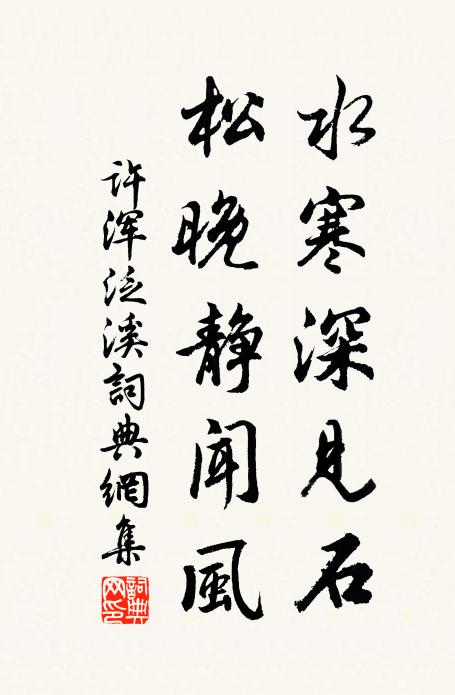 水寒深见石
松晚静闻風
许浑泛溪詞典網集
詞典網印